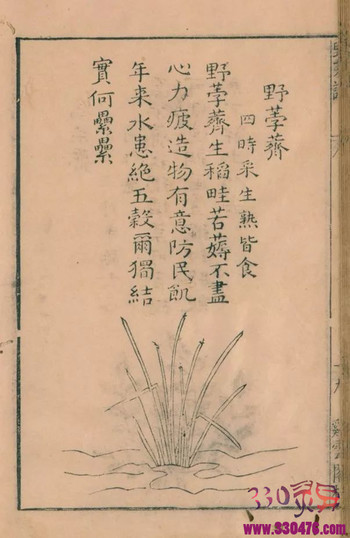 野荸薺
四時采生熟皆食
野荸薺生稻畦苦薅不盡
心力疲造物有意防民飢
年来水患絶五穀爾獨結
實何纍纍
330
www.930476.com